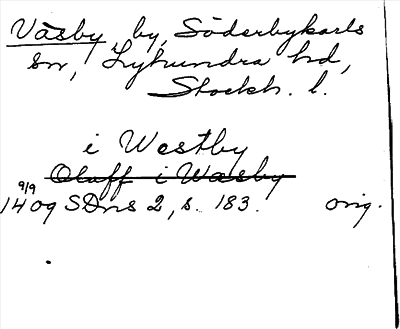 Väsby by, Söderbykarls
sn, Lyhundra hd,
Stockh. l.
i Westby
Oluff i Wæsby
9/9
1409 SDns 2, s. 183. orig.